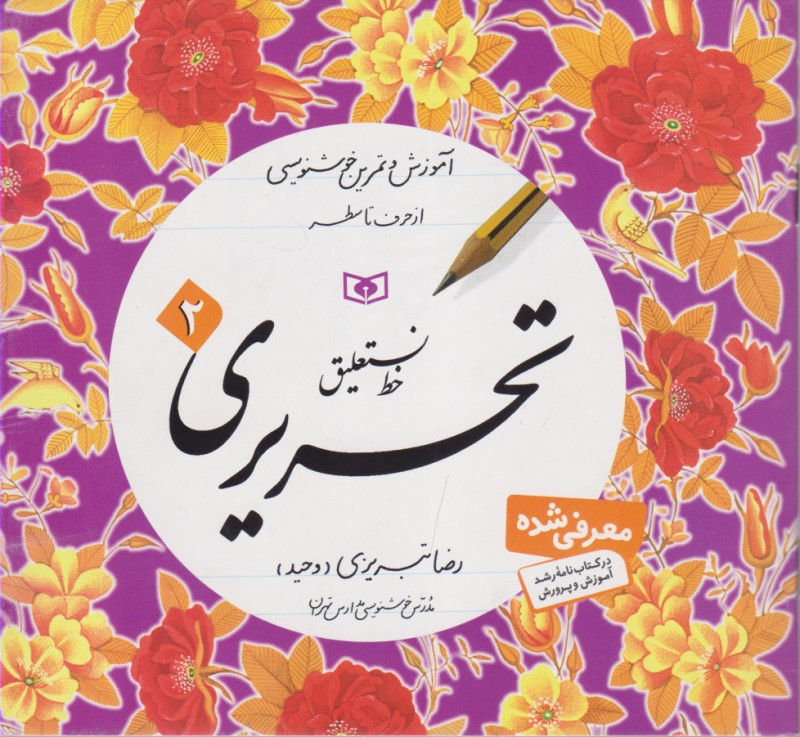 آموزش و تمرین خوشنویسی
از حرف تا سطر
۲
خط نستعلیق
تحریری
معرفی شده
در کتاب‌نامهٔ رشد
آموزش و پرورش
رضا تبریزی (وحید)
مدرّس خوشنویسی مدارس تهران